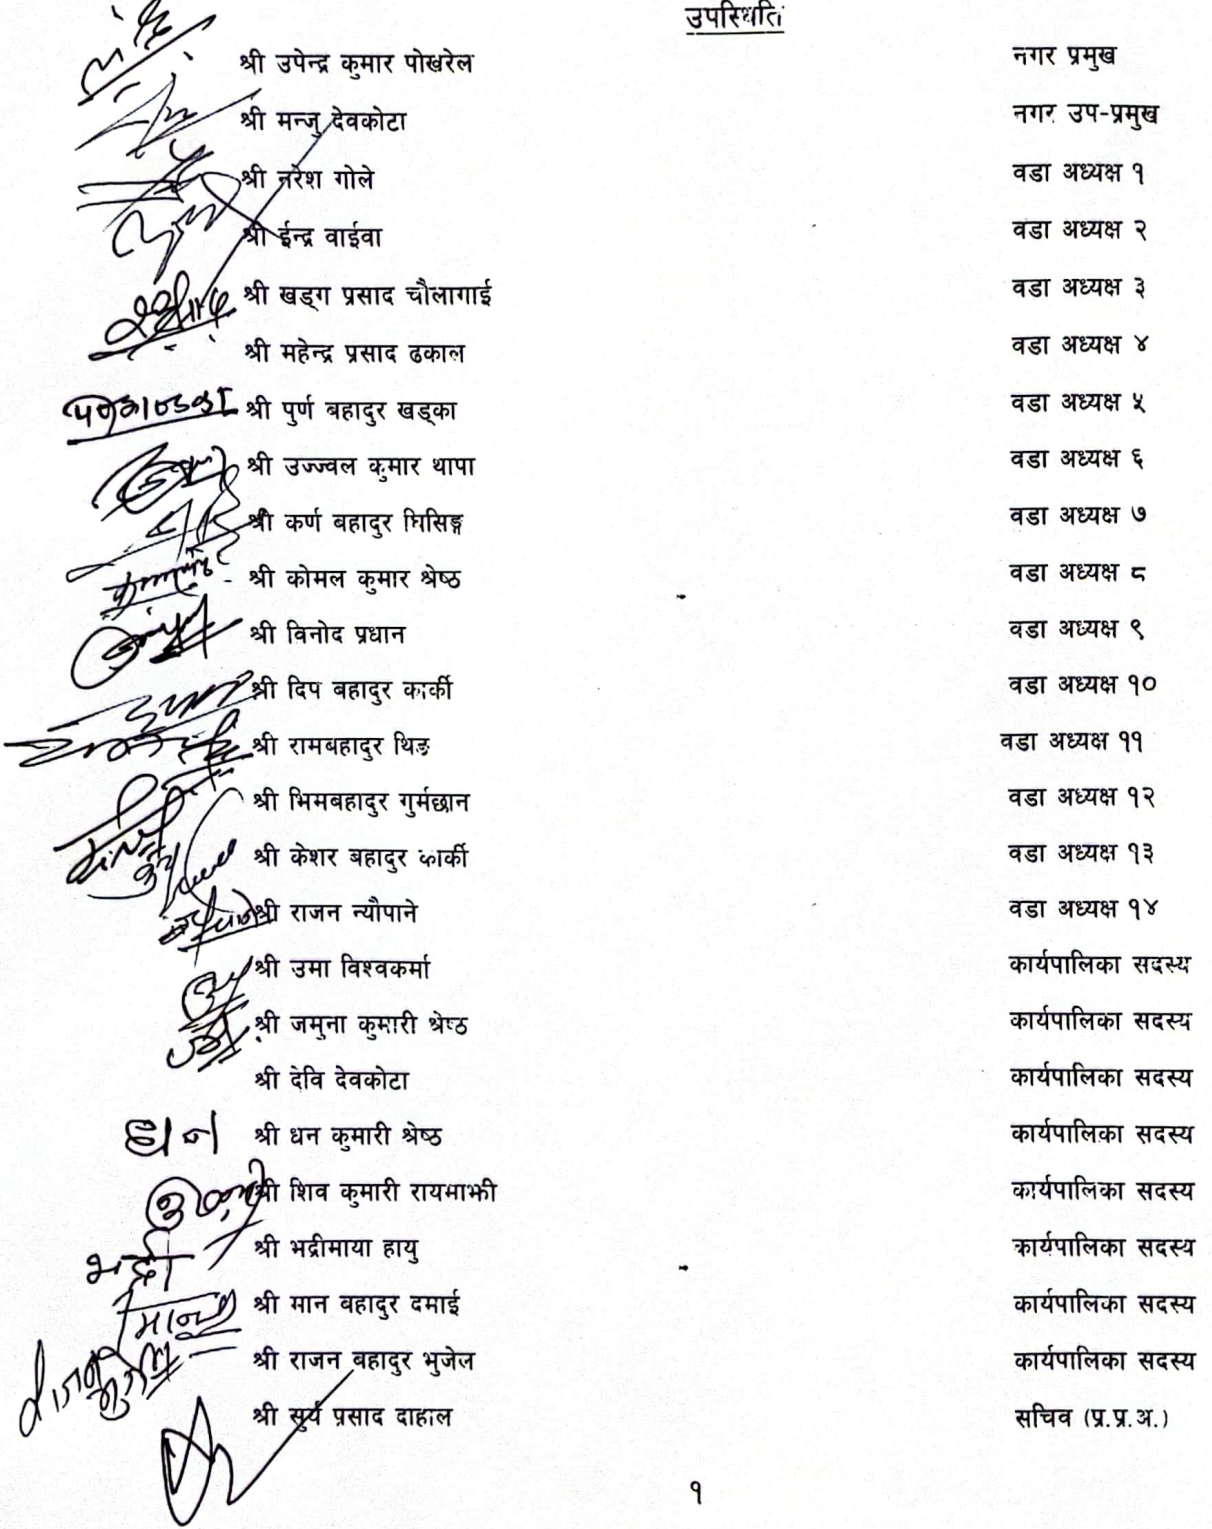 उपस्थिति
श्री उपेन्द्र कुमार पोखरेल नगर प्रमुख
श्री मन्जु देवकोटा नगर उप-प्रमुख
श्री नरेश गोले वडा अध्यक्ष १
श्री ईन्द्र वाईवा वडा अध्यक्ष २
श्री खड्ग प्रसाद चौलागाई वडा अध्यक्ष ३
श्री महेन्द्र प्रसाद ढकाल वडा अध्यक्ष ४
श्री पुर्ण बहादुर खड्का वडा अध्यक्ष ५
श्री उज्ज्वल कुमार थापा वडा अध्यक्ष ६
श्री कर्ण बहादुर घिसिङ्ग वडा अध्यक्ष ७
श्री कोमल कुमार श्रेष्ठ वडा अध्यक्ष ८
श्री विनोद प्रधान वडा अध्यक्ष ९
श्री दिप बहादुर कार्की वडा अध्यक्ष १०
श्री रामबहादुर थिङ वडा अध्यक्ष ११
श्री भिमबहादुर गुर्मछान वडा अध्यक्ष १२
श्री केशर बहादुर कार्की वडा अध्यक्ष १३
श्री राजन न्यौपाने वडा अध्यक्ष १४
श्री उमा विश्वकर्मा कार्यपालिका सदस्य
श्री जमुना कुमारी श्रेष्ठ कार्यपालिका सदस्य
श्री देवि देवकोटा कार्यपालिका सदस्य
धन श्री धन कुमारी श्रेष्ठ कार्यपालिका सदस्य
श्री शिव कुमारी रायमाझी कार्यपालिका सदस्य
भद्री श्री भद्रीमाया हायु कार्यपालिका सदस्य
श्री मान बहादुर दमाई कार्यपालिका सदस्य
श्री राजन बहादुर भुजेल कार्यपालिका सदस्य
श्री सुर्य प्रसाद दाहाल सचिव (प्र.प्र.अ.)
१